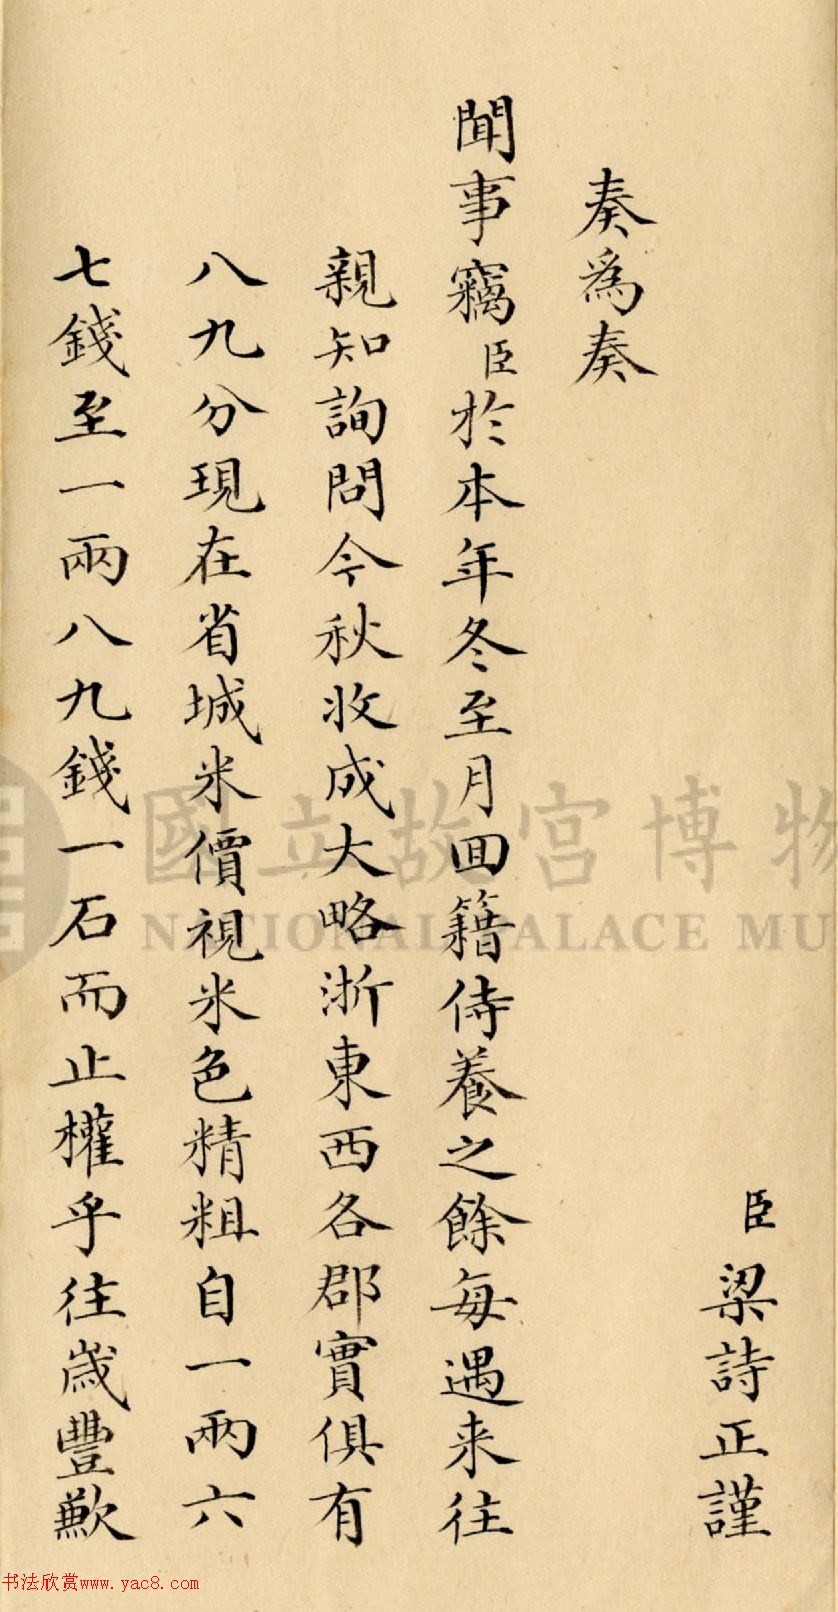 臣梁詩正謹
奏爲奏
聞事竊臣於本年冬至月回籍侍養之餘每遇来往
親知詢問今秋收成大略浙東西各郡實俱有
八九分現在省城米價視米色精粗自一兩六
七錢至一兩八九錢一石而止權乎往歲豐歉
國立故宮博物
NATIONAL PALACE MU
书法欣赏www.yac8.com